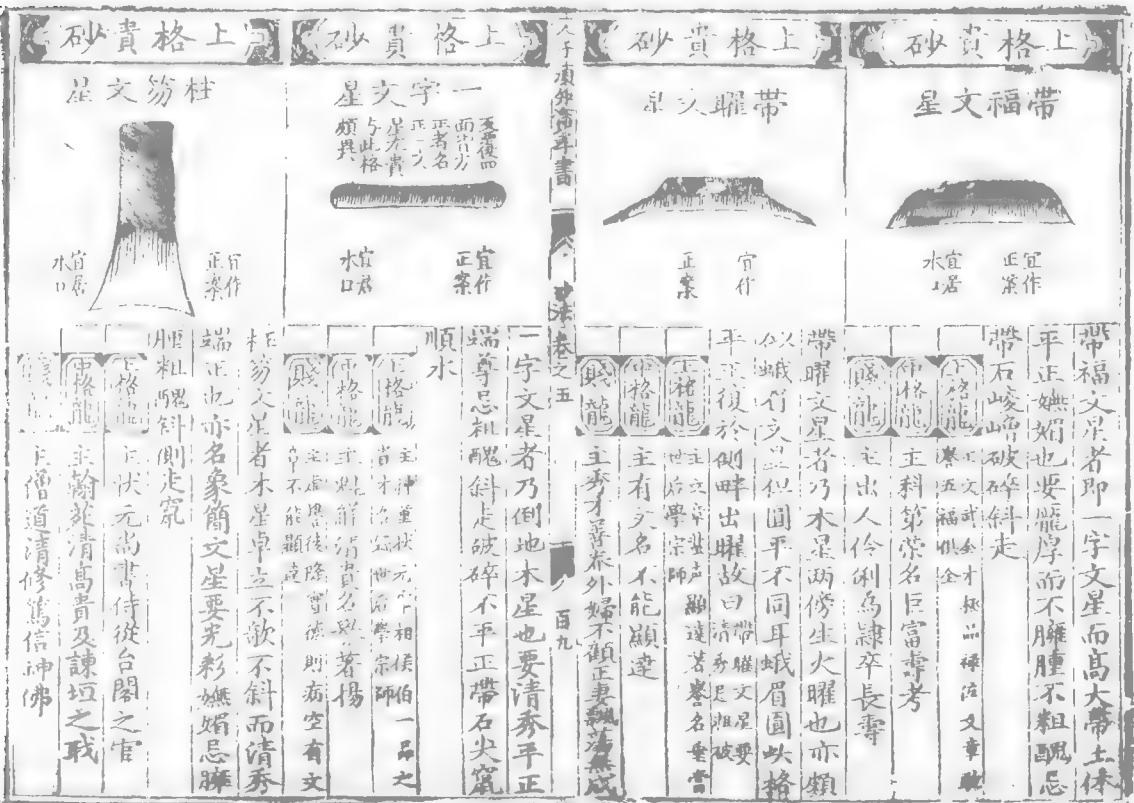 上格貴砂
帶福文星
宜作
正案
宜居
水口
帶福文星者即一字文星而高大帶土体
平正嫵媚也要龎厚而不臃腫不粗醜忌
帶石崚嶒破碎斜走
上格龍
主文武全才極品祿位文章
譽五福俱全
中格龍
主科第榮名巨富壽考
賤龍
主出人伶俐為隸卒長壽
上格貴砂
帶曜文星
宜作
正案
帶曜文星者乃木星两傍生火曜也亦類
蛾眉文星但圓平不同耳蛾眉圓此格
平正復於側畔出曜故曰帶曜文星要
清秀足
上格龍
主文章
声顯達著譽名重當
世后學宗師
中格龍
主有文名不能顯達
賤龍
主秀才
外婦不顧正妻飄蕩無成
人子須知
砂法卷之五
百九
上格貴砂
一字文星
正者名
正一文
星尤貴
與此格
頗異
宜作
正案
宜居
水口
一字文星者乃倒地木星也要清秀平正
端尊忌粗醜斜走破碎不平正帶石尖竄
順水
上格龍
主神童狀元宰相侯伯一品之
貴才治世后學宗師
中格龍
主魁解清貴名譽著揚
賤龍
主虛譽後隆實德則病空有文
章不能顯達
上格貴砂
柱笏文星
宜作
正案
宜居
水口
柱笏文星者木星卓立不欹不斜而清秀
端正也亦名象簡文星要光彩嫵媚忌臃
腫粗醜斜側走竄
上格龍
主狀元尚書侍從台閣之官
中格龍
主翰苑清高貴及諫垣之職
主僧道清修篤信神佛